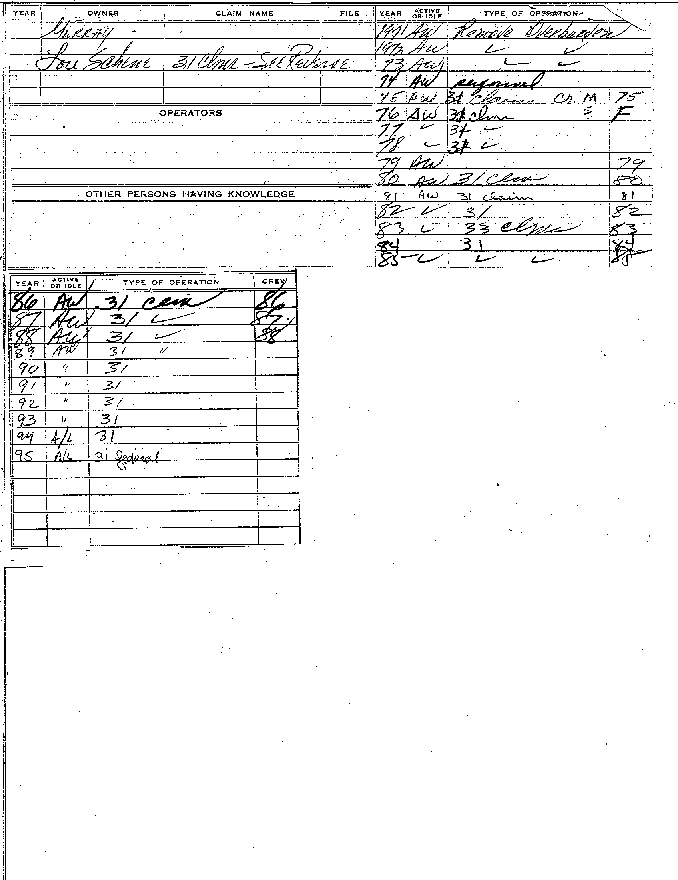 YEAR OWNER CLAIM NAME FILE
Murray
Lou Sabine 31 Clms - See Reverse
OPERATORS
OTHER PERSONS HAVING KNOWLEDGE
YEAR ACTIVE OR IDLE TYPE OF OPERATION
1971 AW Remove Overburden
1972 AW ✓ ✓
73 AW ✓ ✓
74 AW personal
75 AW 31 Claims Cr. M 75
76 AW 31 clm F
77 ✓ 31 ✓
78 ✓ 31 ✓
79 AW 79
80 AW 31 Clem 80
81 AW 31 claim 81
82 ✓ 31 82
83 ✓ 33 clms 83
84 31 84
85 ✓ ✓ ✓ 85
YEAR ACTIVE OR IDLE TYPE OF OPERATION CREW
86 AW 31 clm 86
87 AW 31 ✓ 87
88 AW 31 ✓ 88
89 AW 31 "
90 " 31
91 " 31
92 " 31
93 " 31
94 A/L 31
95 A/L 31 Federal